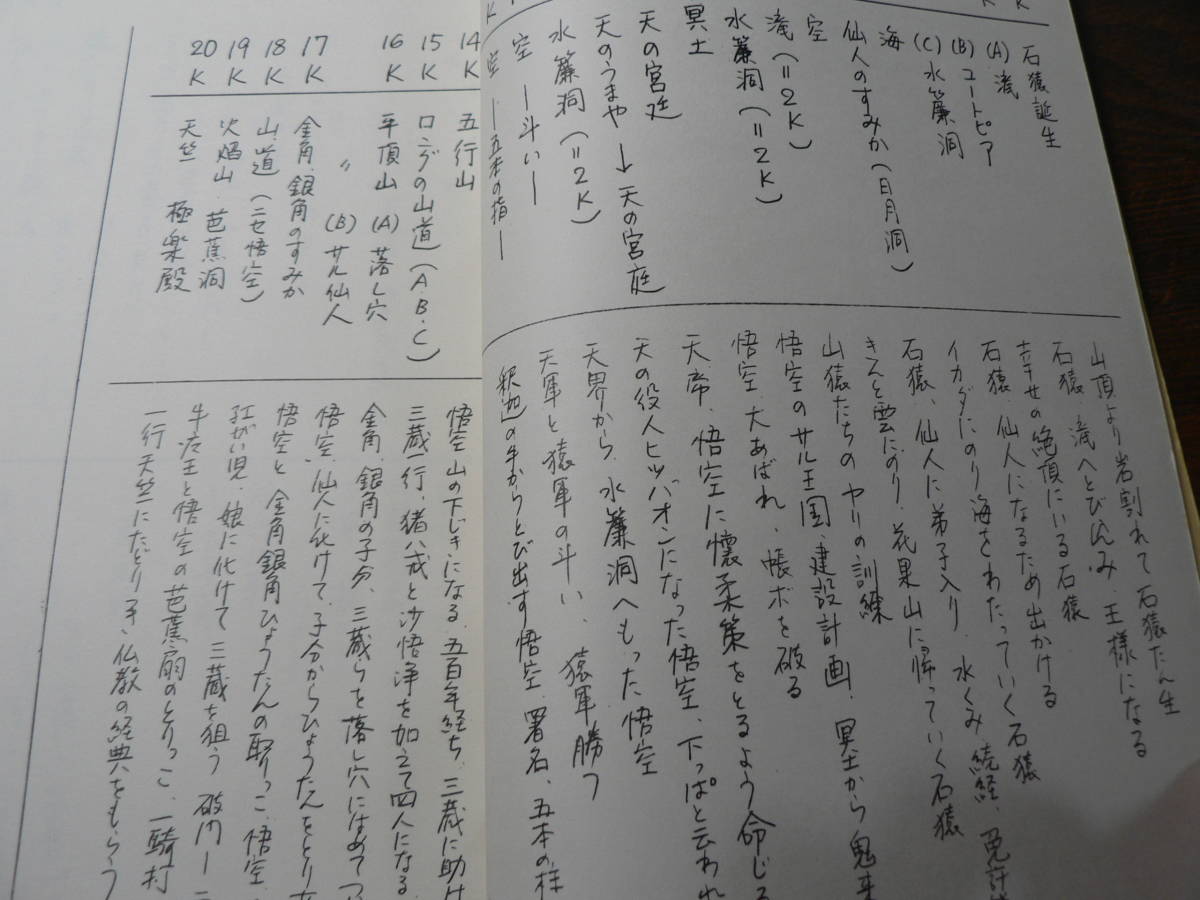 K
K
K
石猿誕生
(A) 滝
(B) ユートピア
(C) 水簾洞
海
仙人のすみか（日月洞）
空
滝（＝2K）
水簾洞（＝2K）
冥土
天の宮廷
天のうまや → 天の宮廷
水簾洞（＝2K）
空 ―斗い―
空 ―五本の指―
山頂より岩割れて石猿たん生
石猿、滝へとびこみ、王様になる
幸せの絶頂にいる石猿
石猿、仙人になるため出かける
イカダにのり海をわたっていく石猿
石猿、仙人に弟子入り、水くみ、続経、免許
きんと雲にのり、花果山に帰っていく石猿
山猿たちのヤリの訓練
悟空のサル王国、建設計画、冥土から鬼来
悟空、大あばれ、帳ボを破る
天帝、悟空に懐柔策をとるよう命じる
天の役人ヒッパオンになった悟空、下っぱと云われ
天界から、水簾洞へもどった悟空
天軍と猿軍の斗い、猿軍勝つ
釈迦の手からとび出す悟空、署名、五本の柱
14K 五行山
15K ロングの山道（A・B・C）
16K 平頂山 (A) 落し穴
〃 (B) サル仙人
17K 金角、銀角のすみか
18K 山道（ニセ悟空）
19K 火焔山、芭蕉洞
20K 天竺 極楽殿
悟空、山の下じきになる、五百年経ち、三蔵に助け
三蔵一行、猪八戒と沙悟浄を加えて四人になる
金角、銀角の子分、三蔵らを落し穴にはめて
悟空、仙人に化けて、子分からひょうたんをとり
悟空と、金角銀角ひょうたんの取りっこ、悟空
紅がい児、娘に化けて三蔵を狙う 破門
牛魔王と悟空の芭蕉扇のとりっこ、一騎打
一行天竺にたどりつき、仏教の経典をもらう